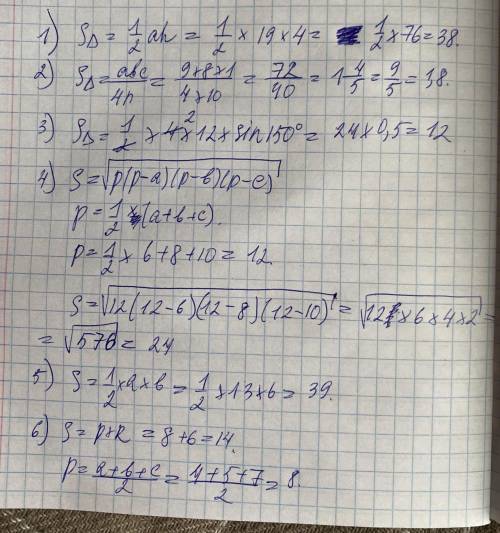 1) S△ = 1/2 ah = 1/2 × 19 × 4 = 1/2 × 76 = 38.
2) S△ = abc/4R = 9×8×1/4×10 = 72/40 = 1 4/5 = 9/5 = 1,8.
3) S△ = 1/2 × 4 2 × 12 × sin 150° = 24 × 0,5 = 12
4) S = √p(p-a)(p-в)(p-c)
p = 1/2 × (a+в+c).
p = 1/2 × 6+8+10 = 12
S = √12(12-6)(12-8)(12-10) = √12 × 6 × 4 × 2 =
= √576 = 24
5) S = 1/2 × a × в = 1/2 × 13 × 6 = 39.
6) S = p×R = 8+6 = 14.
p = a+в+c/2 = 4+5+7/2 = 8.